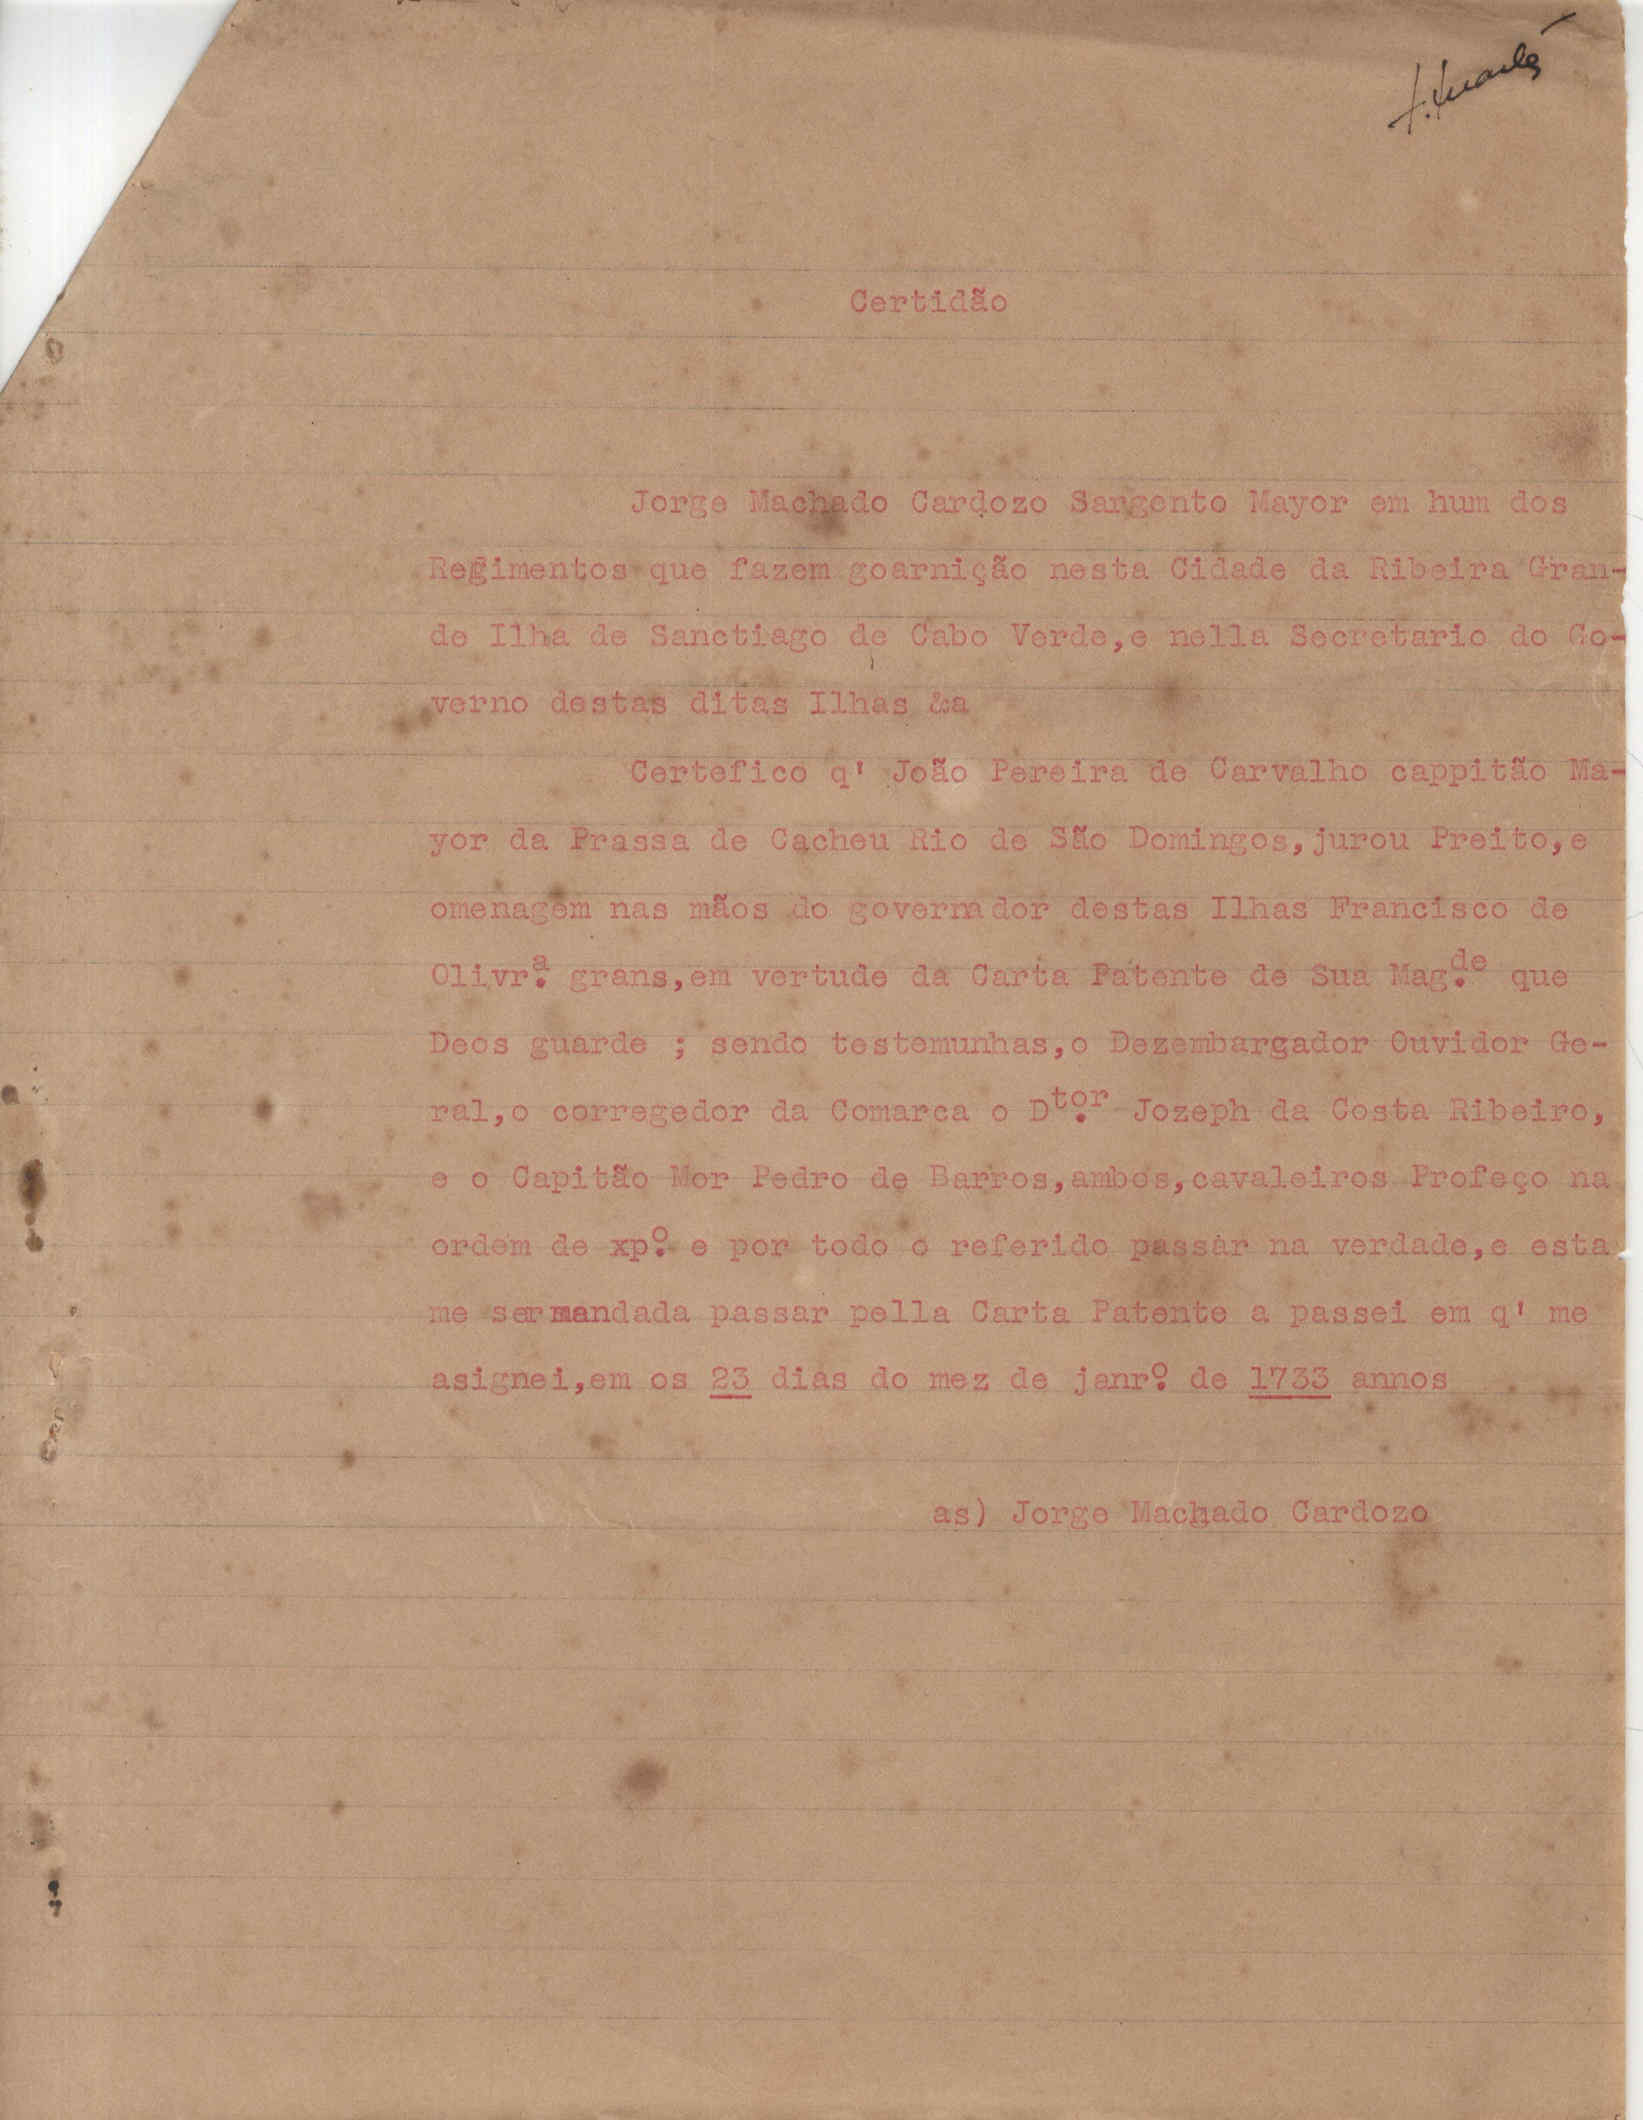 Certidão
Jorge Machado Cardozo Sargento Mayor em hum dos
Regimentos que fazem goarnição nesta Cidade da Ribeira Gran-
de Ilha de Sanctiago de Cabo Verde,e nella Secretario do Go-
verno destas ditas Ilhas &a
Certefico q' João Pereira de Carvalho cappitão Ma-
yor da Prassa de Cacheu Rio de São Domingos,jurou Preito,e
omenagem nas mãos do governador destas Ilhas Francisco de
Olivr.ª grans,em vertude da Carta Patente de Sua Mag.de que
Deos guarde ; sendo testemunhas,o Dezembargador Ouvidor Ge-
ral,o corregedor da Comarca o D.tor Jozeph da Costa Ribeiro,
e o Capitão Mor Pedro de Barros,ambos,cavaleiros Profeço na
ordem de xp.º e por todo o referido passar na verdade,e esta
me ser mandada passar pella Carta Patente a passei em q' me
asignei,em os 23 dias do mez de janr.º de 1733 annos
as) Jorge Machado Cardozo